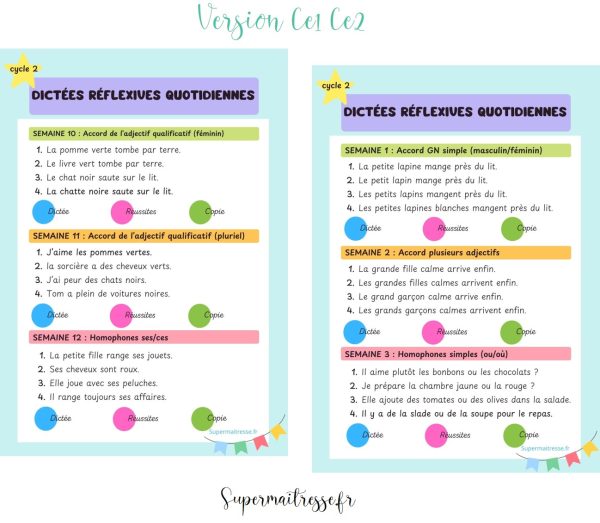 Version Ce1 Ce2
cycle 2
DICTÉES RÉFLEXIVES QUOTIDIENNES
SEMAINE 10 : Accord de l'adjectif qualificatif (féminin)
1. La pomme verte tombe par terre.
2. Le livre vert tombe par terre.
3. Le chat noir saute sur le lit.
4. La chatte noire saute sur le lit.
Dictée Réussites Copie
SEMAINE 11 : Accord de l'adjectif qualificatif (pluriel)
1. J'aime les pommes vertes.
2. la sorcière a des cheveux verts.
3. J'ai peur des chats noirs.
4. Tom a plein de voitures noires.
Dictée Réussites Copie
SEMAINE 12 : Homophones ses/ces
1. La petite fille range ses jouets.
2. Ses cheveux sont roux.
3. Elle joue avec ses peluches.
4. Il range toujours ses affaires.
Dictée Réussites Copie
Supermaitresse.fr
cycle 2
DICTÉES RÉFLEXIVES QUOTIDIENNES
SEMAINE 1 : Accord GN simple (masculin/féminin)
1. La petite lapine mange près du lit.
2. Le petit lapin mange près du lit.
3. Les petits lapins mangent près du lit.
4. Les petites lapines blanches mangent près du lit.
Dictée Réussites Copie
SEMAINE 2 : Accord plusieurs adjectifs
1. La grande fille calme arrive enfin.
2. Les grandes filles calmes arrivent enfin.
3. Le grand garçon calme arrive enfin.
4. Les grands garçons calmes arrivent enfin.
Dictée Réussites Copie
SEMAINE 3 : Homophones simples (ou/où)
1. Il aime plutôt les bonbons ou les chocolats ?
2. Je prépare la chambre jaune ou la rouge ?
3. Elle ajoute des tomates ou des olives dans la salade.
4. Il y a de la slade ou de la soupe pour le repas.
Dictée Réussites Copie
Supermaitresse.fr
Supermaitresse.fr